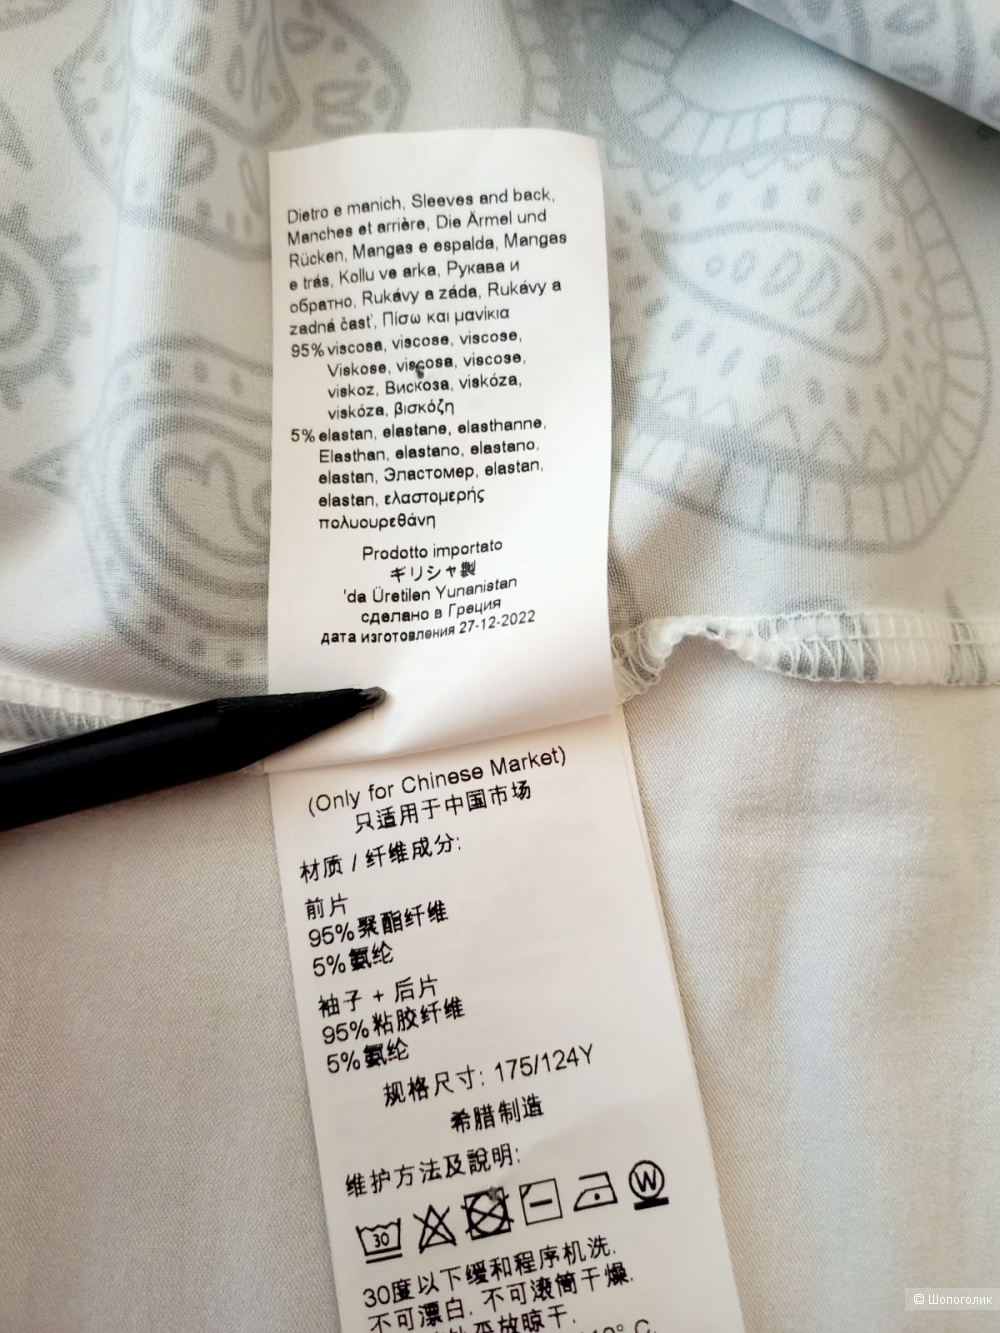 Dietro e manich, Sleeves and back,
Manches et arrière, Die Ärmel und
Rücken, Mangas e espalda, Mangas
e trás, Kollu ve arka, Рукава и
обратно, Rukávy a záda, Rukávy a
zadná čast', Πίσω και μανίκια
95% viscosa, viscose, viscose,
Viskose, viscosa, viscose,
viskoz, Вискоза, viskóza,
viskóza, βισκόζη
5% elastan, elastane, elasthanne,
Elasthan, elastano, elastano,
elastan, Эластомер, elastan,
elastan, ελαστομερής
πολυουρεθάνη
Prodotto importato
ギリシャ製
'da Üretilen Yunanistan
сделано в Греция
дата изготовления 27-12-2022
(Only for Chinese Market)
只适用于中国市场
材质 / 纤维成分:
前片
95%聚酯纤维
5%氨纶
袖子 + 后片
95%粘胶纤维
5%氨纶
规格尺寸: 175/124Y
希腊制造
维护方法及說明:
30
W
30度以下缓和程序机洗.
不可漂白. 不可滚筒干燥.
平放晾干.
© Шопоголик